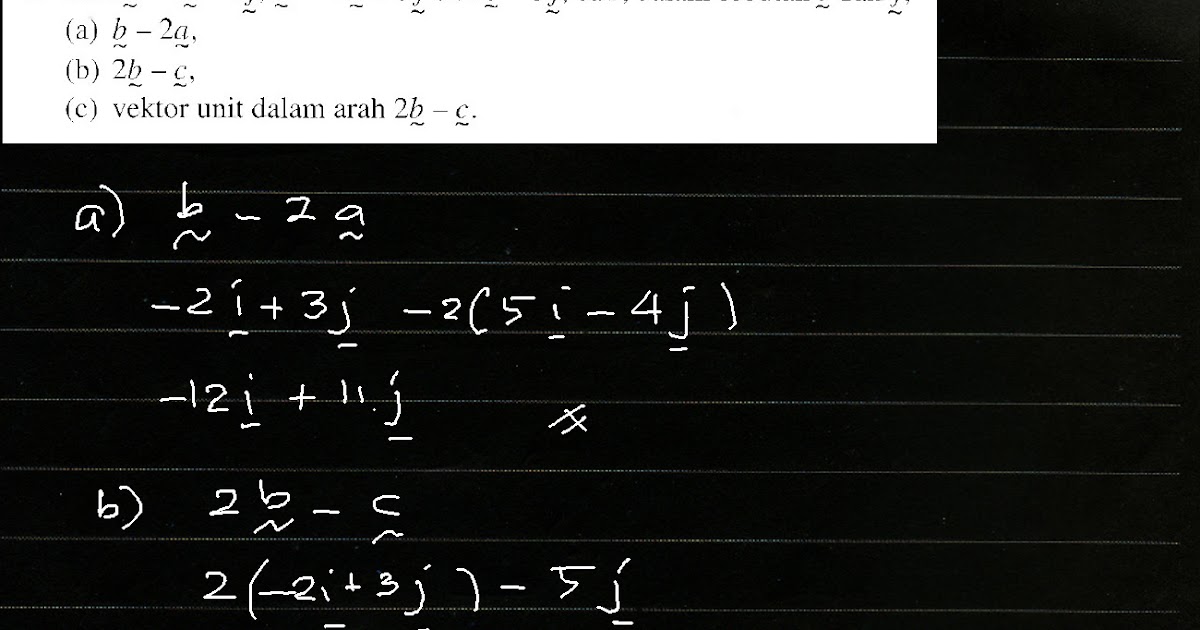 (a) b – 2a,
(b) 2b – c,
(c) vektor unit dalam arah 2b – c.
a) b - 2a
-2i + 3j -2(5i - 4j)
-12i + 11j
b) 2b - c
2(-2i + 3j) - 5j